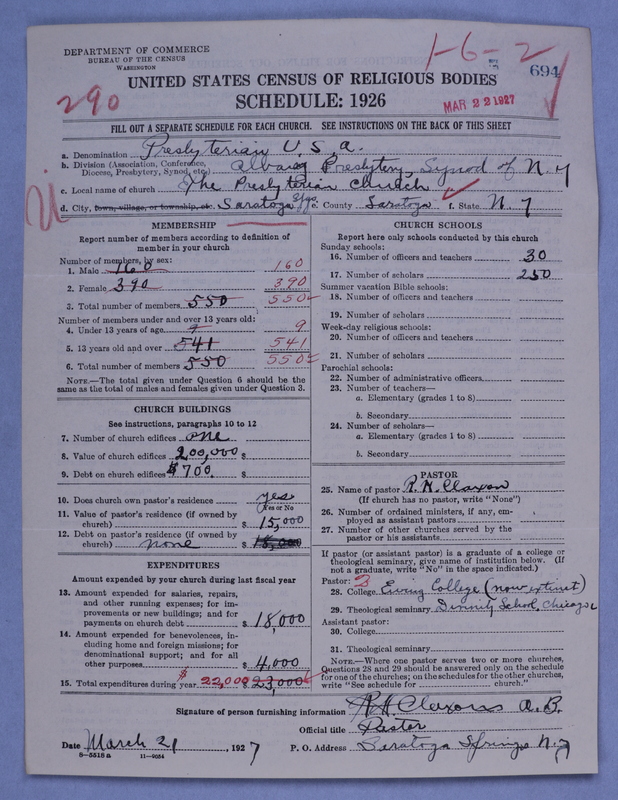 DEPARTMENT OF COMMERCE
BUREAU OF THE CENSUS
WASHINGTON
1-6-2
694
UNITED STATES CENSUS OF RELIGIOUS BODIES
290
SCHEDULE: 1926
MAR 22 1927
FILL OUT A SEPARATE SCHEDULE FOR EACH CHURCH. SEE INSTRUCTIONS ON THE BACK OF THIS SHEET
a. Denomination Presbyterian U.S.A.
b. Division (Association, Conference, Diocese, Presbytery, Synod, etc.) Albany Presbytery, Synod of N.Y
c. Local name of church The Presbyterian Church
d. City, town, village, or township, etc. Saratoga Spgs e. County Saratoga f. State N.Y
MEMBERSHIP
Report number of members according to definition of
member in your church
Number of members, by sex:
1. Male 160 160
2. Female 390 390
3. Total number of members 550 550
Number of members under and over 13 years old:
4. Under 13 years of age 9 9
5. 13 years old and over 541 541
6. Total number of members 550 550
NOTE.—The total given under Question 6 should be
same as the total of males and females given under Question 3.
CHURCH BUILDINGS
See instructions, paragraphs 10 to 12
7. Number of church edifices one
8. Value of church edifices 200,000 $
9. Debt on church edifices $700. $
10. Does church own pastor's residence yes
(Yes or No)
11. Value of pastor's residence (if owned by
church) $ 15,000
12. Debt on pastor's residence (if owned by
church) none $ 18,000
EXPENDITURES
Amount expended by your church during last fiscal year
13. Amount expended for salaries, repairs,
and other running expenses; for im-
provements or new buildings; and for
payments on church debt $ 18,000
14. Amount expended for benevolences, in-
cluding home and foreign missions; for
denominational support; and for all
other purposes $ 4,000
15. Total expenditures during year $ 22,000 $ 23,000
CHURCH SCHOOLS
Report here only schools conducted by this church
Sunday schools:
16. Number of officers and teachers 30
17. Number of scholars 250
Summer vacation Bible schools:
18. Number of officers and teachers
19. Number of scholars
Week-day religious schools:
20. Number of officers and teachers
21. Number of scholars
Parochial schools:
22. Number of administrative officers
23. Number of teachers—
a. Elementary (grades 1 to 8)
b. Secondary
24. Number of scholars—
a. Elementary (grades 1 to 8)
b. Secondary
PASTOR
25. Name of pastor R. H. Claxon
(If church has no pastor, write "None")
26. Number of ordained ministers, if any, em-
ployed as assistant pastors
27. Number of other churches served by the
pastor or his assistants
If pastor (or assistant pastor) is a graduate of a college or
theological seminary, give name of institution below. (If
not a graduate, write "No" in the space indicated.)
Pastor: 2
28. College Ewing College (now extinct)
29. Theological seminary Divinity School, Chicago
Assistant pastor:
30. College
31. Theological seminary
NOTE.—Where one pastor serves two or more churches,
Questions 28 and 29 should be answered only on the schedule
for one of the churches; on the schedules for the other churches,
write "See schedule for church."
Signature of person furnishing information R. H. Claxon A.B.
Official title Pastor
Date March 21, 1927 P. O. Address Saratoga Springs N.Y
8-5518a 11-9054